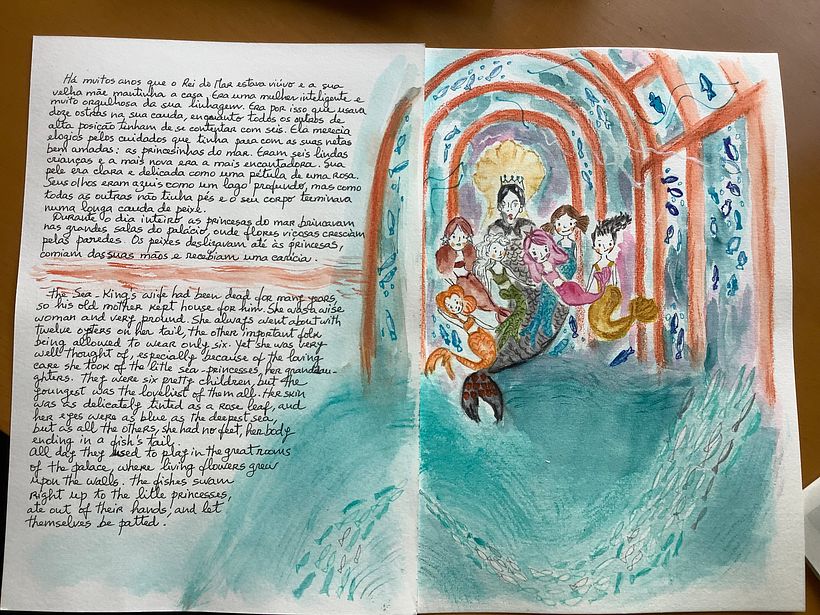 Há muitos anos que o Rei do Mar estava viúvo e a sua
velha mãe mantinha a casa. Era uma mulher inteligente e
muito orgulhosa da sua linhagem. Era por isso que usava
doze ostras na sua cauda, enquanto todos os outros de
alta posição tinham de se contentar com seis. Ela merecia
elogios pelos cuidados que tinha para com as suas netas
bem amadas: as princesinhas do mar. Eram seis lindas
crianças e a mais nova era a mais encantadora. Sua
pele era clara e delicada como uma pétula de uma rosa.
Seus olhos eram azuis como um lago profundo, mas como
todas as outras não tinha pés e o seu corpo terminava
numa longa cauda de peixe.
Durante o dia inteiro, as princesas do mar brincavam
nas grandes salas do palácio, onde flores viçosas cresciam
pelas paredes. Os peixes deslizavam até às princesas,
comiam das suas mãos e recebiam uma carícia.
The Sea-King's wife had been dead for many years,
so his old mother kept house for him. She was a wise
woman and very pround. She always went about with
twelve oysters on her tail, the other important folk
being allowed to wear only six. Yet she was very
well thought of, especially because of the loving
care she took of the litle sea-princesses, her grandau-
ghters. They were six pretty children, but the
youngest was the loveliest of them all. Her skin
was as delicately tinted as a rose leaf, and
her eyes were as blue as the deepest sea,
but as all the others, she had no feet, her body
ending in a fish's tail.
All day they used to play in the great rooms
of the palace, where living flowers grew
upon the walls. The fishes swam
right up to the little princesses,
ate out of their hands, and let
themselves be patted.